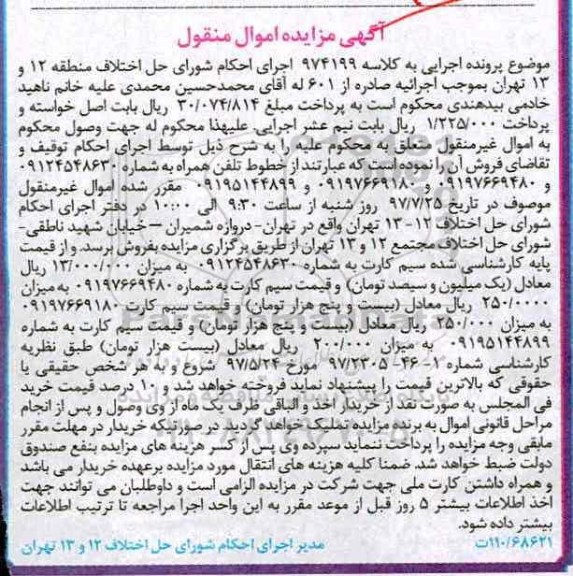 آگهی مزایده اموال منقول
موضوع پرونده اجرایی به کلاسه ۹۷۴۱۹۹ اجرای احکام شورای حل اختلاف منطقه ۱۲ و
۱۳ تهران بموجب اجرائیه صادره از ۶۰۱ له آقای محمدحسین محمدی علیه خانم ناهید
خادمی بیدهندی محکوم است به پرداخت مبلغ ۳۰/۰۷۴/۸۱۴ ریال بابت اصل خواسته و
پرداخت ۱/۲۲۵/۰۰۰ ریال بابت نیم عشر اجرایی. علیهذا محکوم له جهت وصول محکوم
به اموال غیرمنقول متعلق به محکوم علیه را به شرح ذیل توسط اجرای احکام توقیف و
تقاضای فروش آن را نموده است که عبارتند از خطوط تلفن همراه به شماره ۰۹۱۲۴۵۴۸۶۳۰
و ۰۹۱۹۷۶۶۹۴۸۰ و ۰۹۱۹۷۶۶۹۱۸۰ و ۰۹۱۹۵۱۴۴۸۹۹ مقرر شده اموال غیرمنقول
موصوف در تاریخ ۹۷/۷/۲۵ روز شنبه از ساعت ۹:۳۰ الی ۱۰:۰۰ در دفتر اجرای احکام
شورای حل اختلاف ۱۲-۱۳ تهران واقع در تهران- دروازه شمیران – خیابان شهید ناطقی-
شورای حل اختلاف مجتمع ۱۲ و ۱۳ تهران از طریق برگزاری مزایده بفروش برسد. و از قیمت
پایه کارشناسی شده سیم کارت به شماره ۰۹۱۲۴۵۴۸۶۳۰ به میزان ۱۳/۰۰۰/۰۰۰ ریال
معادل (یک میلیون و سیصد تومان) و قیمت سیم کارت به شماره ۰۹۱۹۷۶۶۹۴۸۰ به میزان
۲۵۰/۰۰۰۰ ریال معادل (بیست و پنج هزار تومان) و قیمت سیم کارت ۰۹۱۹۷۶۶۹۱۸۰
به میزان ۲۵۰/۰۰۰ ریال معادل (بیست و پنج هزار تومان) و قیمت سیم کارت به شماره
۰۹۱۹۵۱۴۴۸۹۹ به میزان ۲۰۰/۰۰۰ ریال معادل (بیست هزار تومان) طبق نظریه
کارشناسی شماره ۱-۴۶-۹۷/۲۳۰۵ مورخ ۹۷/۵/۲۴ شروع و به هر شخص حقیقی یا
حقوقی که بالاترین قیمت را پیشنهاد نماید فروخته خواهد شد و ۱۰ درصد قیمت خرید
فی المجلس به صورت نقد از خریدار اخذ و الباقی ظرف یک ماه از وی وصول و پس از انجام
مراحل قانونی اموال به برنده مزایده تملیک خواهد گردید. در صورتیکه خریدار در مهلت مقرر
مابقی وجه مزایده را پرداخت ننماید سپرده وی پس از کسر هزینه های مزایده بنفع صندوق
دولت ضبط خواهد شد. ضمنا کلیه هزینه های انتقال مورد مزایده برعهده خریدار می باشد
و همراه داشتن کارت ملی جهت شرکت در مزایده الزامی است و داوطلبان می توانند جهت
اخذ اطلاعات بیشتر ۵ روز قبل از موعد مقرر به این واحد اجرا مراجعه تا ترتیب اطلاعات
بیشتر داده شود.
۱۱۰/۶۸۶۲۱ت مدیر اجرای احکام شورای حل اختلاف ۱۲ و ۱۳ تهران